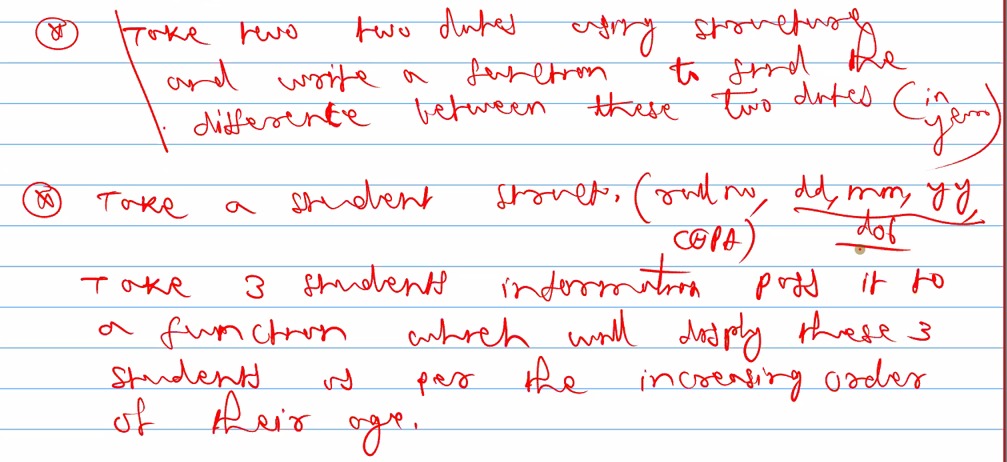 Take two two dates using structure
and write a function to find the
difference between these two dates (in
year)
Take a student struct. (roll no, dd, mm, yy,
CGPA) dob
Take 3 students information pass it to
a function which will disply these 3
students as per the increasing order
of their age.